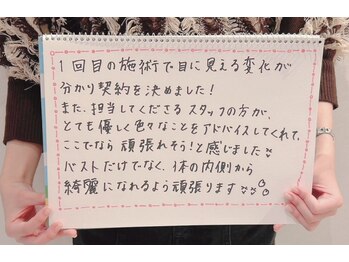 1回目の施術で目に見える変化が
分かり契約を決めました!
また、担当してくださるスタッフの方が、
とても優しく色々なことをアドバイスしてくれて、
ここでなら頑張れそう!と感じました
バストだけでなく、体の内側から
綺麗になれるよう頑張ります